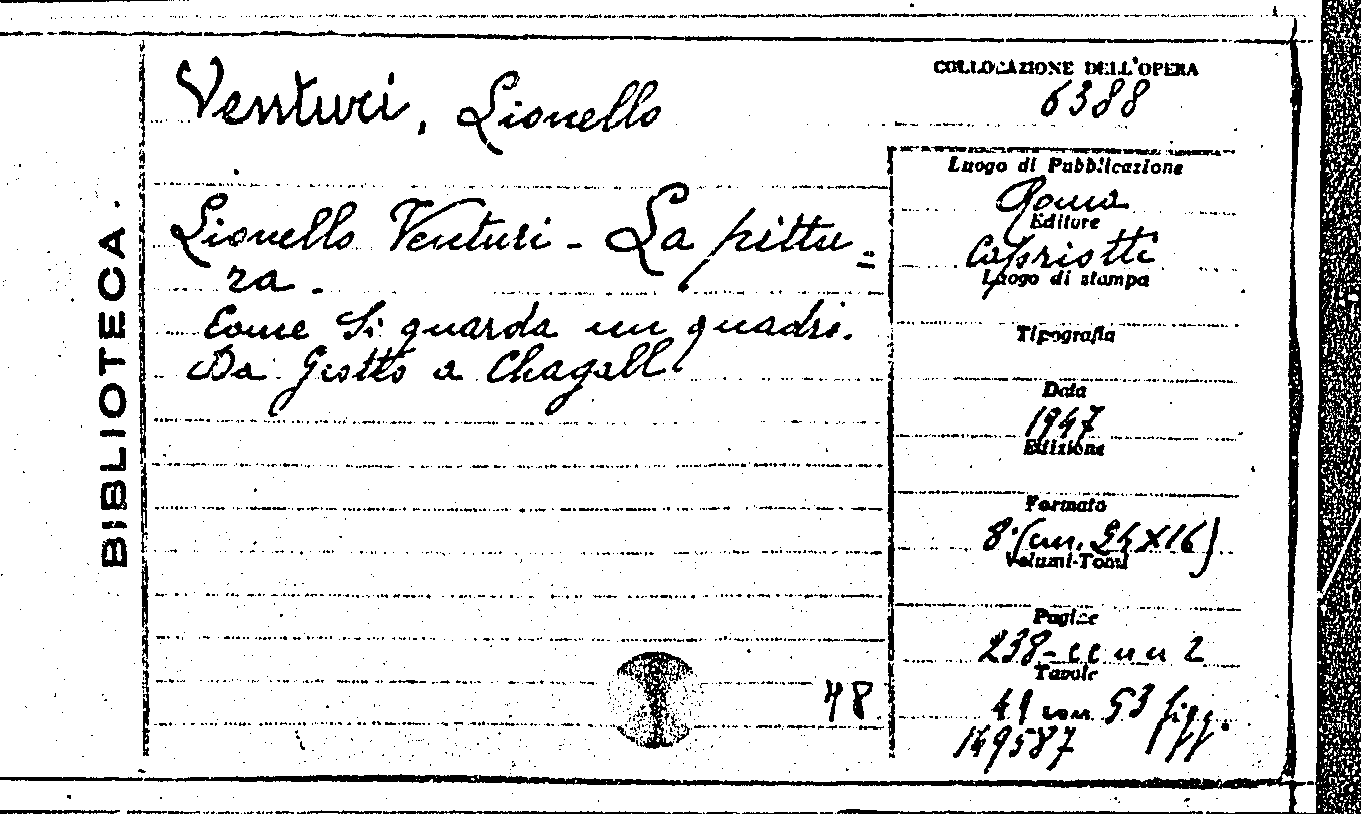 BIBLIOTECA
Venturi, Lionello
Lionello Venturi - La pittu=
ra.
Come si guarda un quadro.
Da Giotto a Chagall
48
COLLOCAZIONE DELL'OPERA
6388
Luogo di Pubblicazione
Roma
Editore
Capriotti
Luogo di stampa
Tipografia
Data
1947
Edizione
Formato
8° (cm. 24x16)
Volumi-Tomi
Pagine
238-cc nn 2
Tavole
41 con 53 figg.
149587